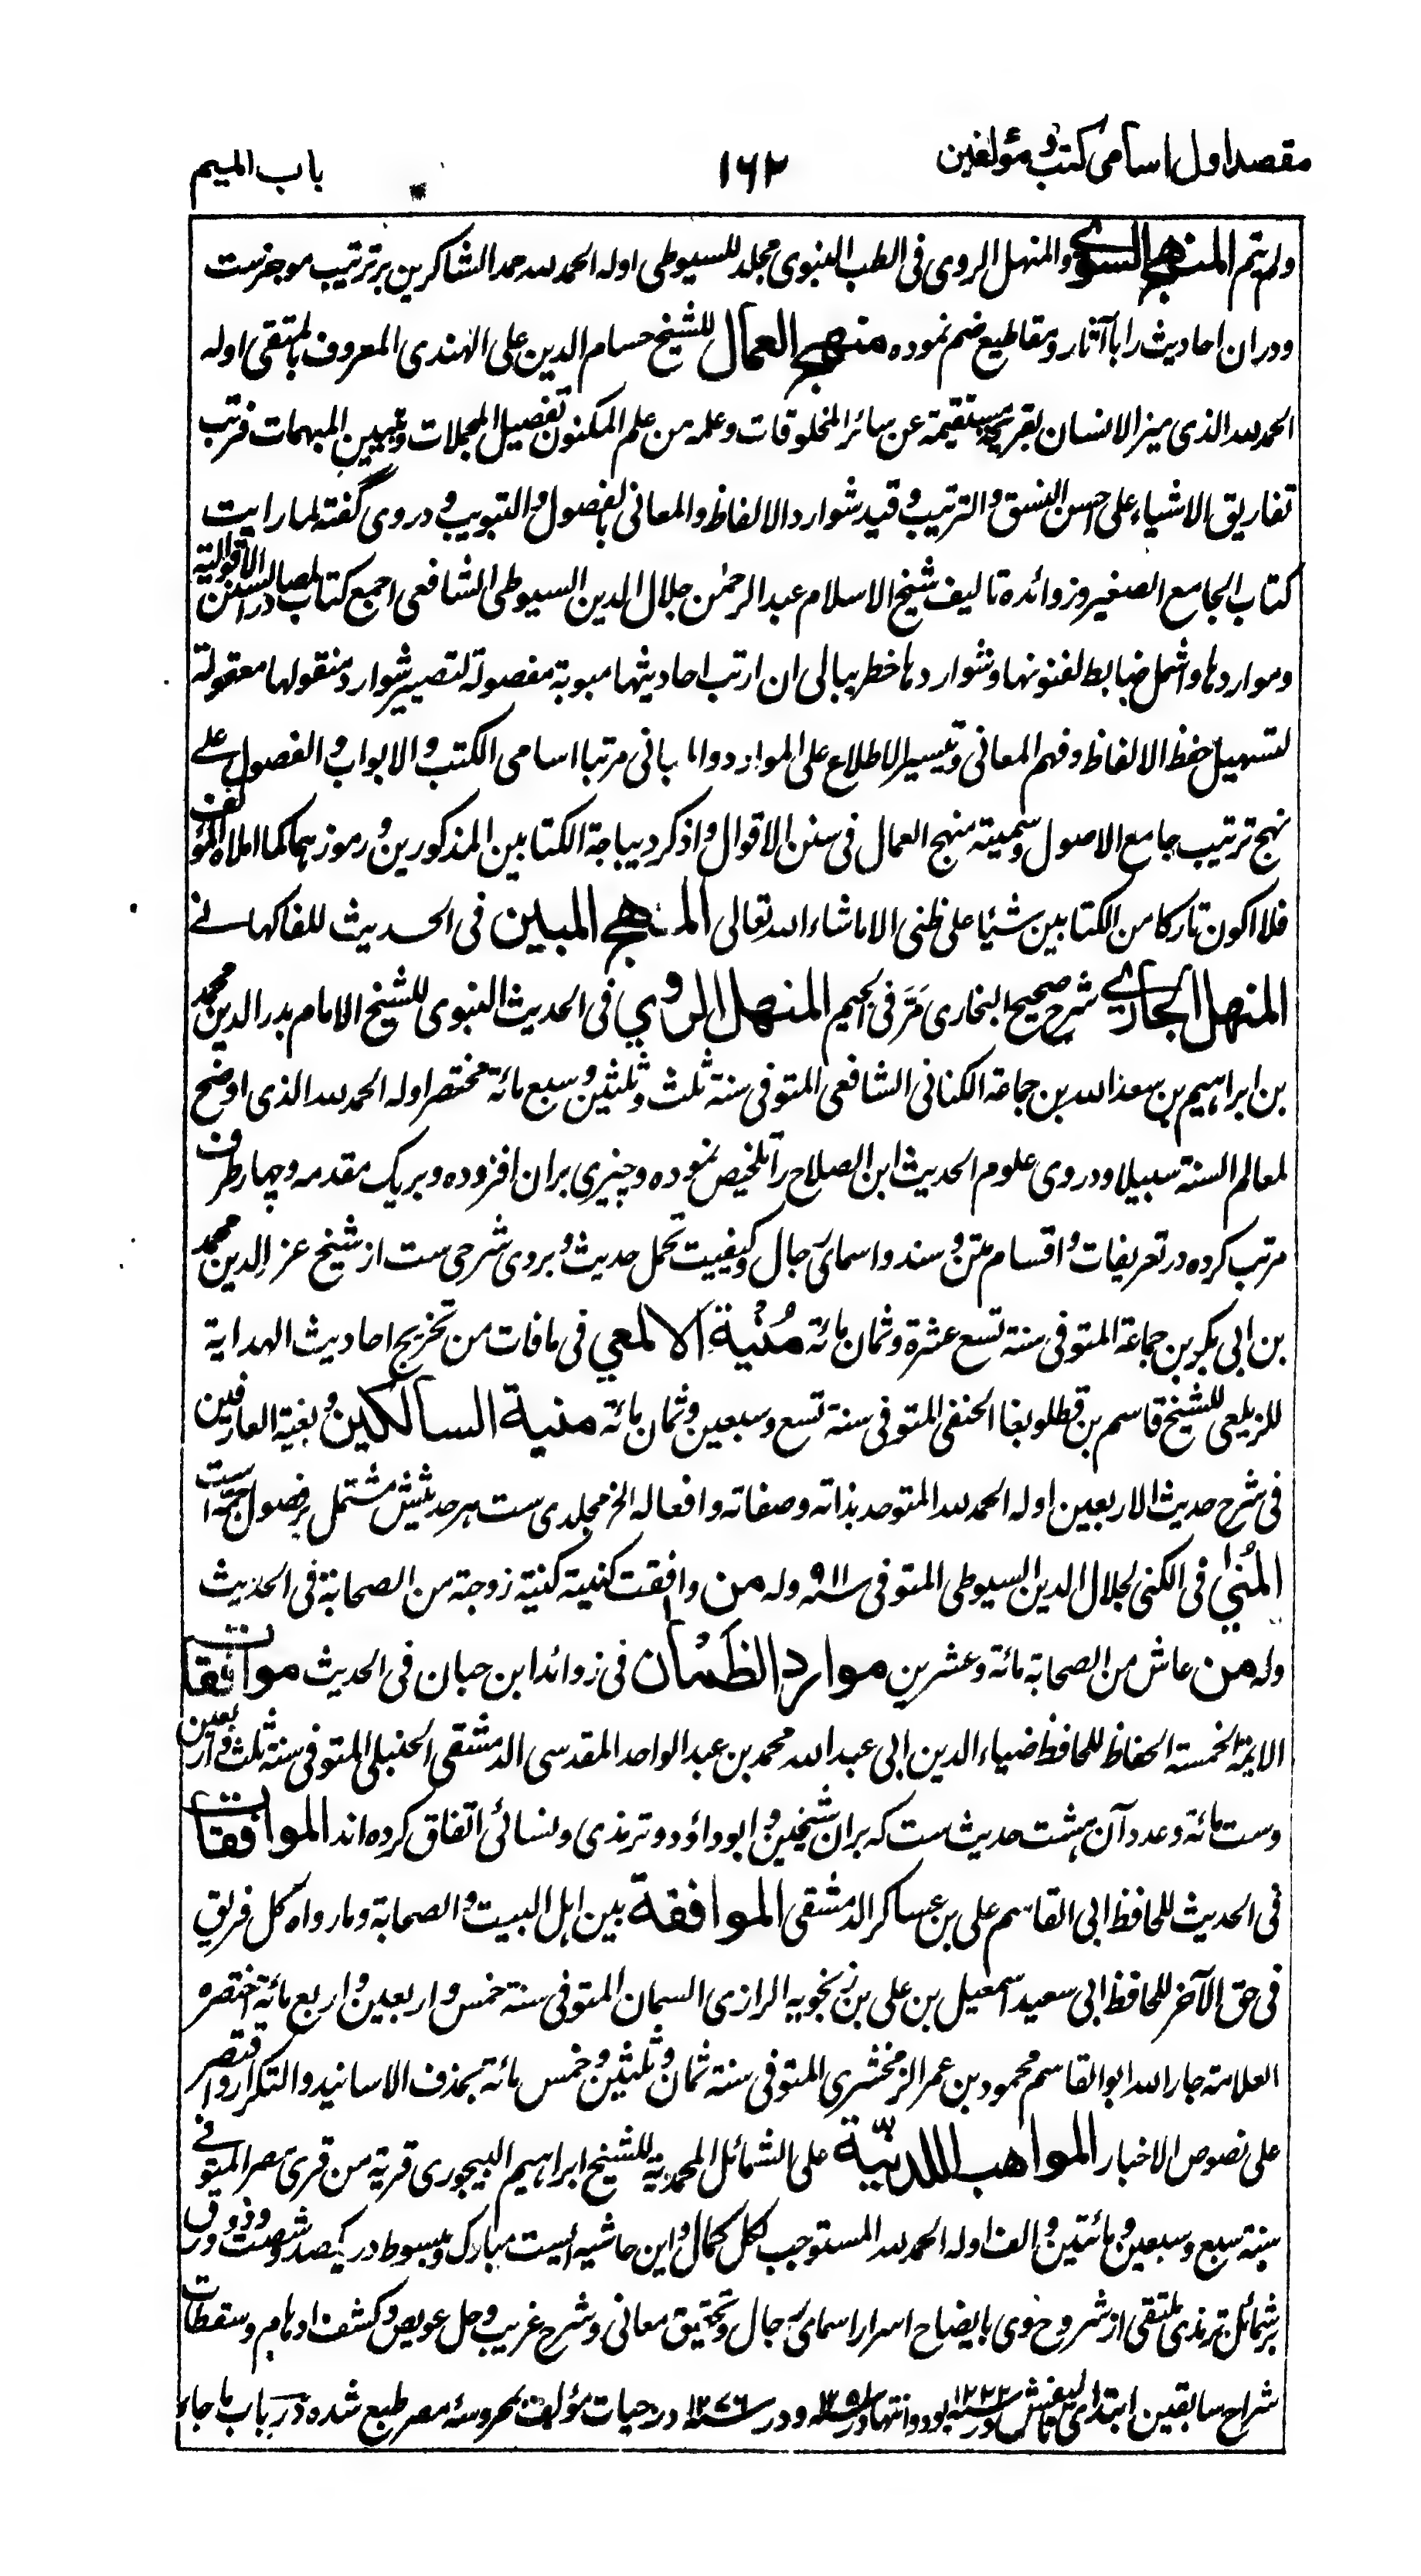 مقصد اول اسامی کتب و مؤلفین ۱۶۲ باب المیم
ولم یتم المنهج السوی والمنهل الروی فی الطب النبوی مجلد للسیوطی اوله الحمد لله حمد الشاکرین بر ترتیب موجزست
ودران احادیث را با آثار و مقاطیع ضم نموده منهج العمال للشیخ حسام الدین علی الهندی المعروف بالمتقی اوله
الحمد لله الذی میز الانسان بقریحة مستقیمة عن سائر المخلوقات وعلمه من علم المکنون تفصیل المجملات وتبیین المبهمات فرتب
تفاریق الاشیاء علی احسن النسق والترتیب و قید شوارد الالفاظ والمعانی بالفصول والتبویب و دروی گفته لما رایت
کتاب الجامع الصغیر وزوائده تالیف شیخ الاسلام عبد الرحمٰن جلال الدین السیوطی الشافعی اجمع کتاب لمصادر السنن الاقوالیة
ومواردها واشمل ضابط لفنونها وشواردها خطر ببالی ان ارتب احادیثها مبوبة مفصولة لتصییر شوارد منقولها معقولة
لتسهیل حفظ الالفاظ وفهم المعانی وتیسیر الاطلاع علی الموارد والمبانی مرتبا اسامی الکتب والابواب والفصول علے
نهج ترتیب جامع الاصول وسمیته منهج العمال فی سنن الاقوال واذکر دیباجة الکتابین المذکورین ورموزهما کما املاه المؤلف
فلا اکون تارکا من الکتابین شیئا علی ظنی الا ماشاء الله تعالی المنهج المبین فی الحدیث للفاکهانے
المنهل الجاری شرح صحیح البخاری مَرّ فی الجیم المنهل الروی فی الحدیث النبوی للشیخ الامام بدر الدین محمد
بن ابراهیم بن سعد الله بن جماعة الکنانی الشافعی المتوفی سنة ثلث وثلثین وسبع مائة مختصر اوله الحمد لله الذی اوضح
لمعالم السنة سبیلا ودروی علوم الحدیث ابن الصلاح را تلخیص نموده وچیزی بران افزوده و بریک مقدمه وچهار طرف
مرتب کرده در تعریفات و اقسام متن و سند و اسمای رجال و کیفیت تحمل حدیث و بروی شرحی ست از شیخ عز الدین محمد
بن ابی بکر بن جماعة المتوفی سنة تسع عشرة وثمان مائة مُنْیة الالمعی فی مافات من تخریج احادیث الهدایة
للزیلعی للشیخ قاسم بن قطلوبغا الحنفی المتوفی سنة تسع وسبعین وثمان مائة منیة السالکین و بغیة العارفین
فی شرح حدیث الاربعین اوله الحمد لله المتوحد بذاته وصفاته وافعاله الخ مجلدی ست هر حدیثش مشتمل بر فصول جمه است
المُنیٰ فی الکنی لجلال الدین السیوطی المتوفی سنه ۹۱۱ وله من وافقت کنیته کنیة زوجته من الصحابة فی الحدیث
وله من عاش من الصحابة مائة وعشرین موارد الظمان فی زوائد ابن حبان فی الحدیث موافقات
الایمة الخمسة الحفاظ للحافظ ضیاء الدین ابی عبد الله محمد بن عبد الواحد المقدسی الدمشقی الحنبلی المتوفی سنة ثلث واربعین
وست مائة وعدد آن هشت حدیث ست که بران شیخین و ابوداؤد و ترمذی و نسائی اتفاق کرده اند الموافقات
فی الحدیث للحافظ ابی القاسم علی بن عساکر الدمشقی الموافقة بین اهل البیت والصحابة ومارواه کل فریق
فی حق الآخر للحافظ ابی سعید اسمعیل بن علی بن زنجویه الرازی السمان المتوفی سنة خمس واربعین واربع مائة اختصره
العلامة جار الله ابو القاسم محمود بن عمر الزمخشری المتوفی سنة ثمان وثلثین وخمس مائة بحذف الاسانید والتکرار واقتصر
علی نصوص الاخبار المواهب اللدنیّة علی الشمائل المحمدیة للشیخ ابراهیم البیجوری قریة من قری مصر المتوفے
سنة سبع وسبعین ومائتین والف اوله الحمد لله المستوجب لکل کمال و این حاشیه ایست مبارک و مبسوط در یکصد و شصت و دو ورق
بر شمائل ترمذی ملتقی از شروح وی بایضاح اسرار اسمای رجال و تحقیق معانی و شرح غریب و حل عویص و کشف اوهام و سقطات
شراح سابقین ابتدای تالیفش در بود و انتها در و در سنه ۱۲۷۶ در حیات مؤلف بمحروسهٔ مصر طبع شده در باب ما جاء